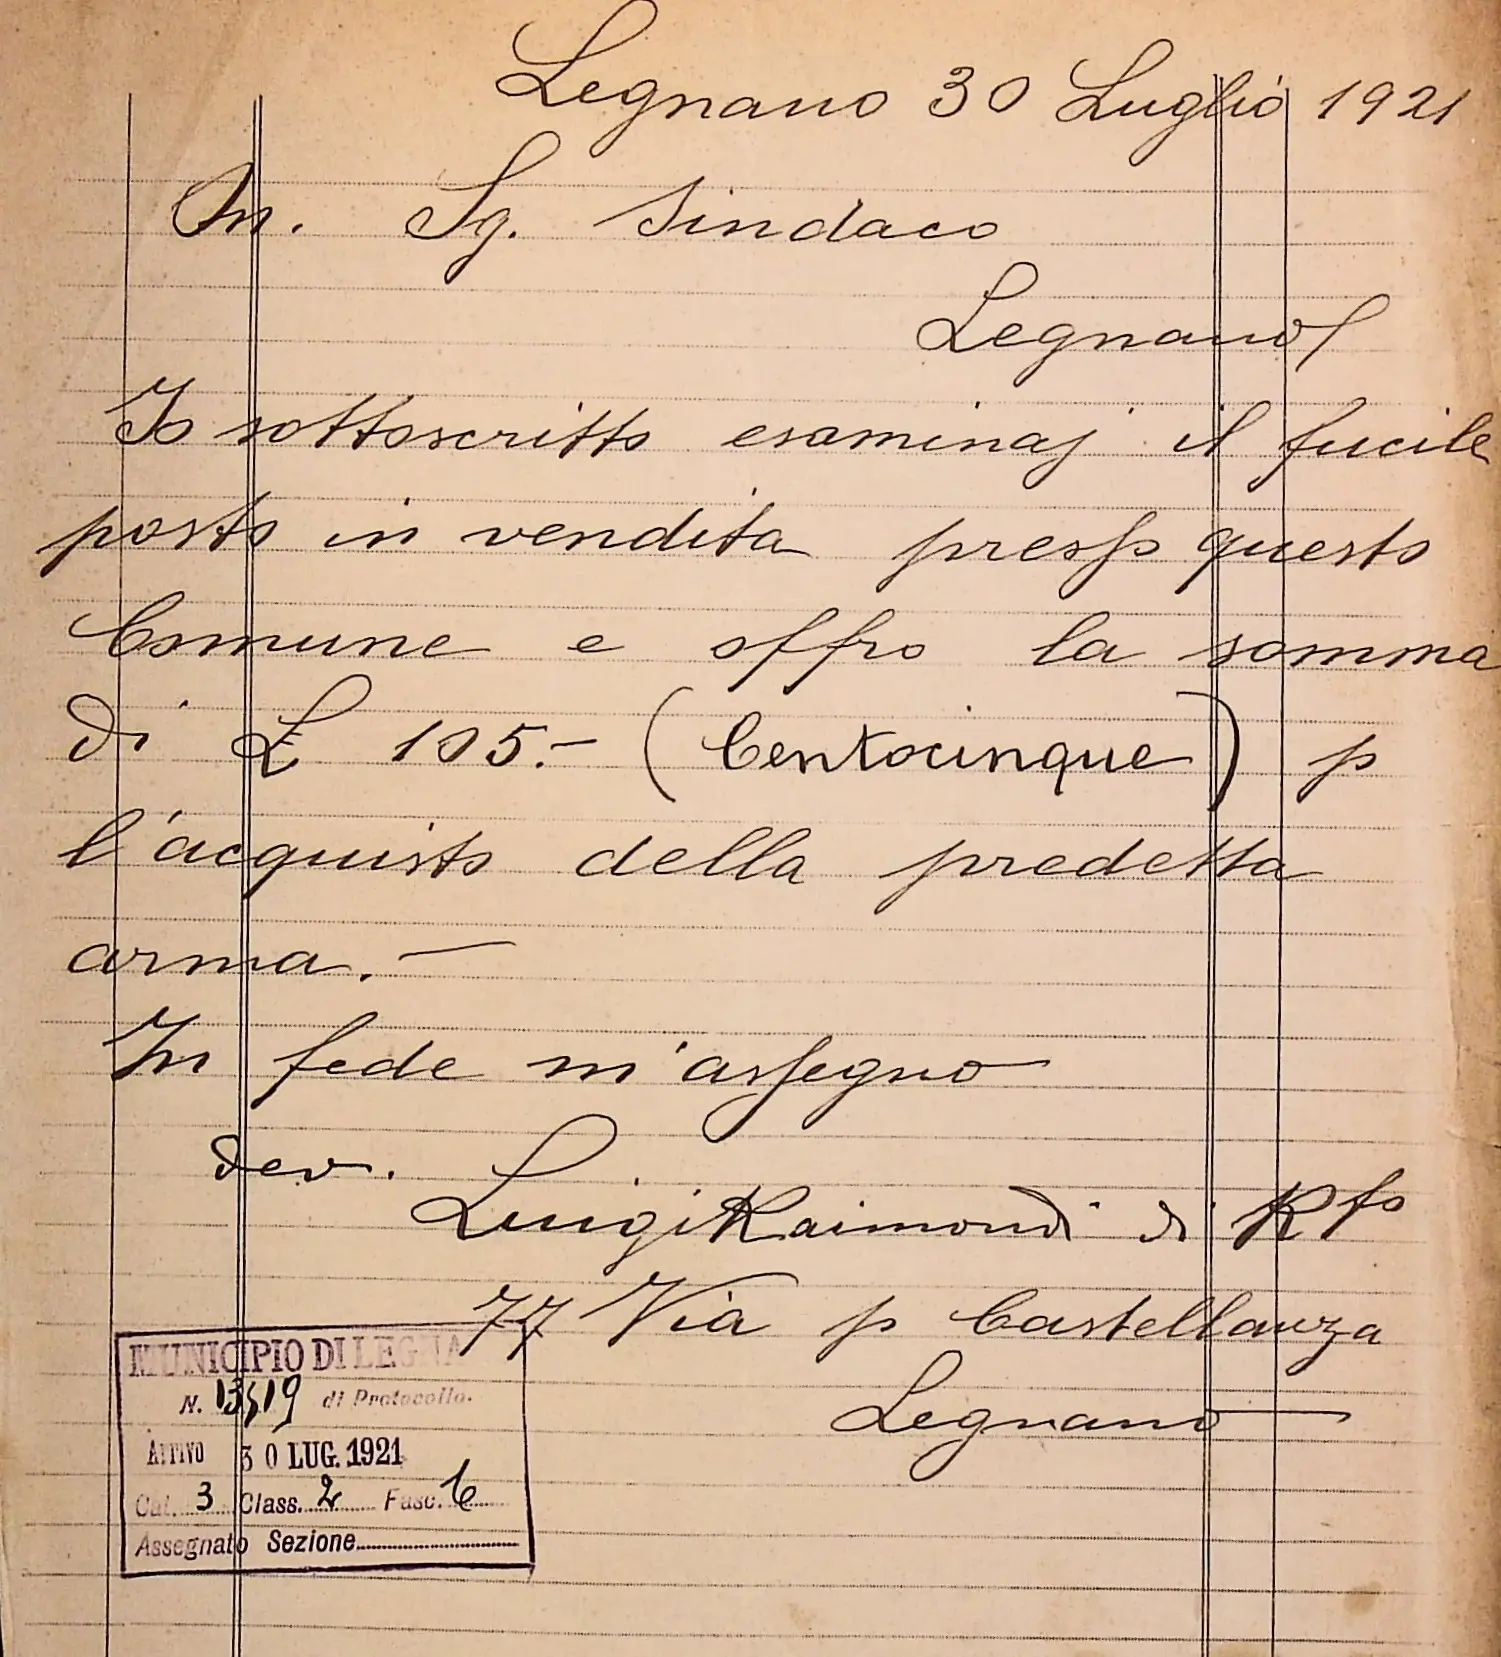 Legnano 30 Luglio 1921
On. Sg. Sindaco
Legnano
Io sottoscritto esaminaj il fucile
posto in vendita presso questo
Comune e offro la somma
di £ 105.- (Centocinque) p
l'acquisto della predetta
arma.-
In fede m'assegno
dev.
Luigi Raimondi di Rfo
77 Via p Castellanza
Legnano
MUNICIPIO DI LEGNA
N. 13419 di Protocollo.
ATTIVO 30 LUG. 1921
Cat. 3 Class. 2 Fasc. 6
Assegnato Sezione